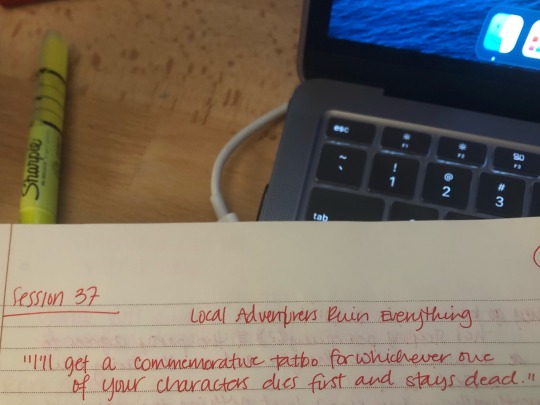 Sharpie
esc
F1
F2
F3
~
`
!
1
@
2
#
3
tab
Session 37
Local Adventurers Ruin Everything
"I'll get a commemorative tattoo for whichever one
of your characters dies first and stays dead."